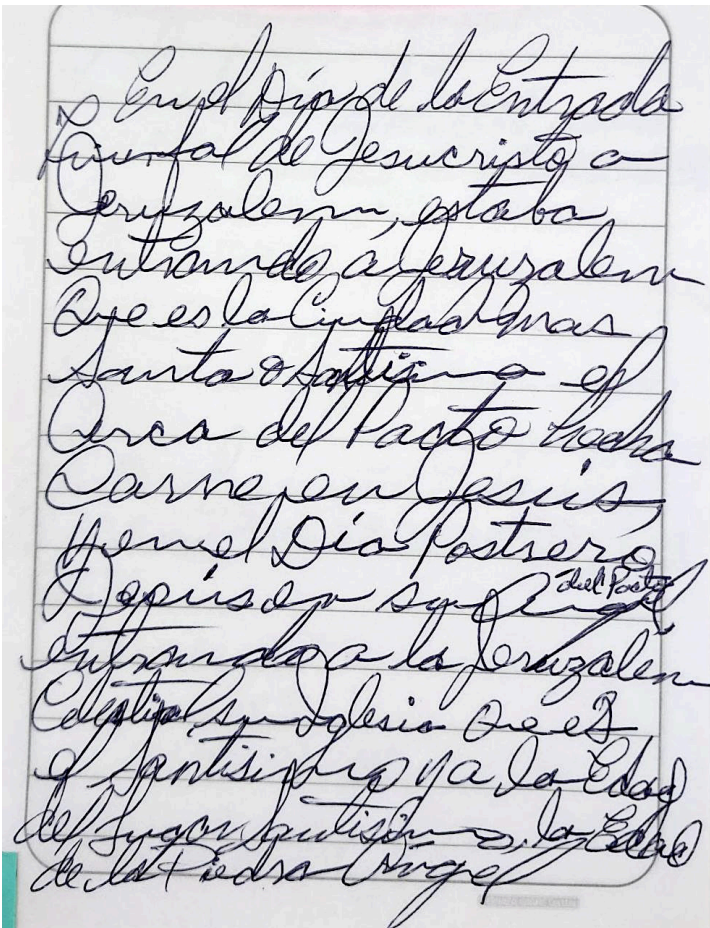 En el Día de la Entrada
Triunfal de Jesucristo a
Jeruzalem, estaba
entrando a Jeruzalem
Que es la Ciudad mas
Santa o Santisima el
Arca del Pacto hecha
Carne en Jesús,
y en el Día Postrero
Jesús en su Angel del Pacto
entrando a la Jeruzalém
Celestial, su Iglesia Que es
el Santisimo y a la Edad
del Lugar Santisimo, la Edad
de la Piedra Angel